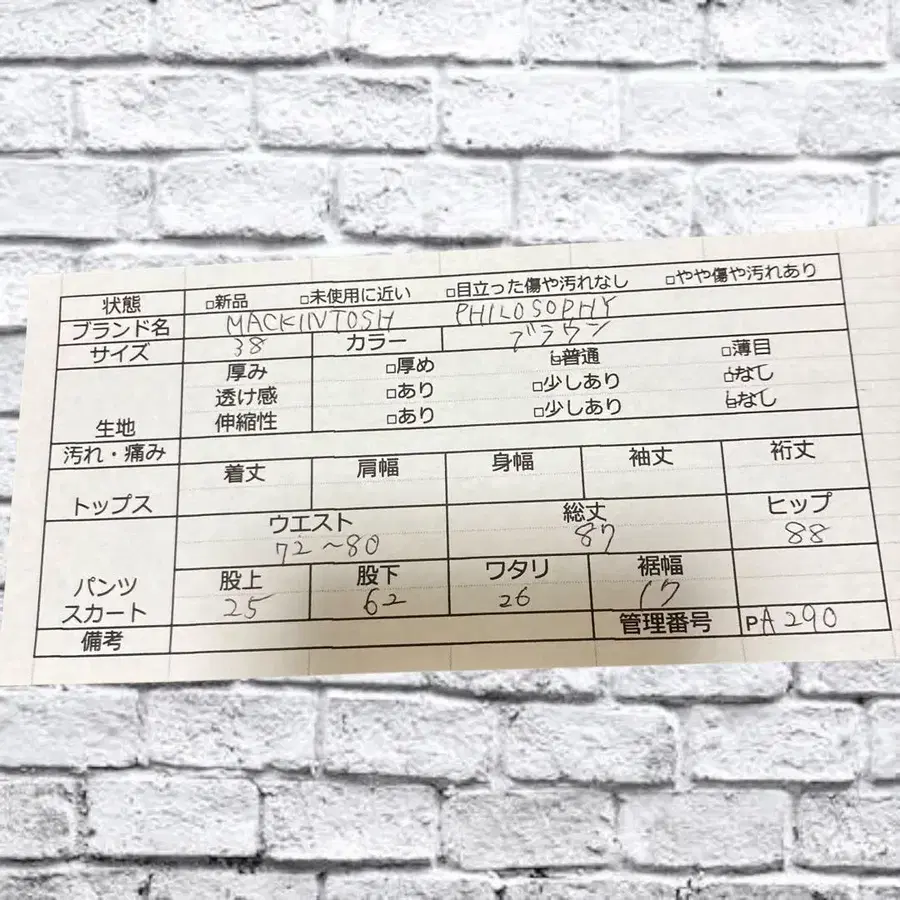 状態 □新品 □未使用に近い □目立った傷や汚れなし □やや傷や汚れあり
ブランド名 MACKINTOSH PHILOSOPHY
サイズ 38 カラー ブラウン
生地 厚み □厚め □普通 □薄目
透け感 □あり □少しあり □なし
伸縮性 □あり □少しあり □なし
汚れ・痛み
トップス 着丈 肩幅 身幅 袖丈 裄丈
パンツ スカート ウエスト 総丈 ヒップ
72〜80 87 88
股上 股下 ワタリ 裾幅
25 62 26 17
備考 管理番号 PA290